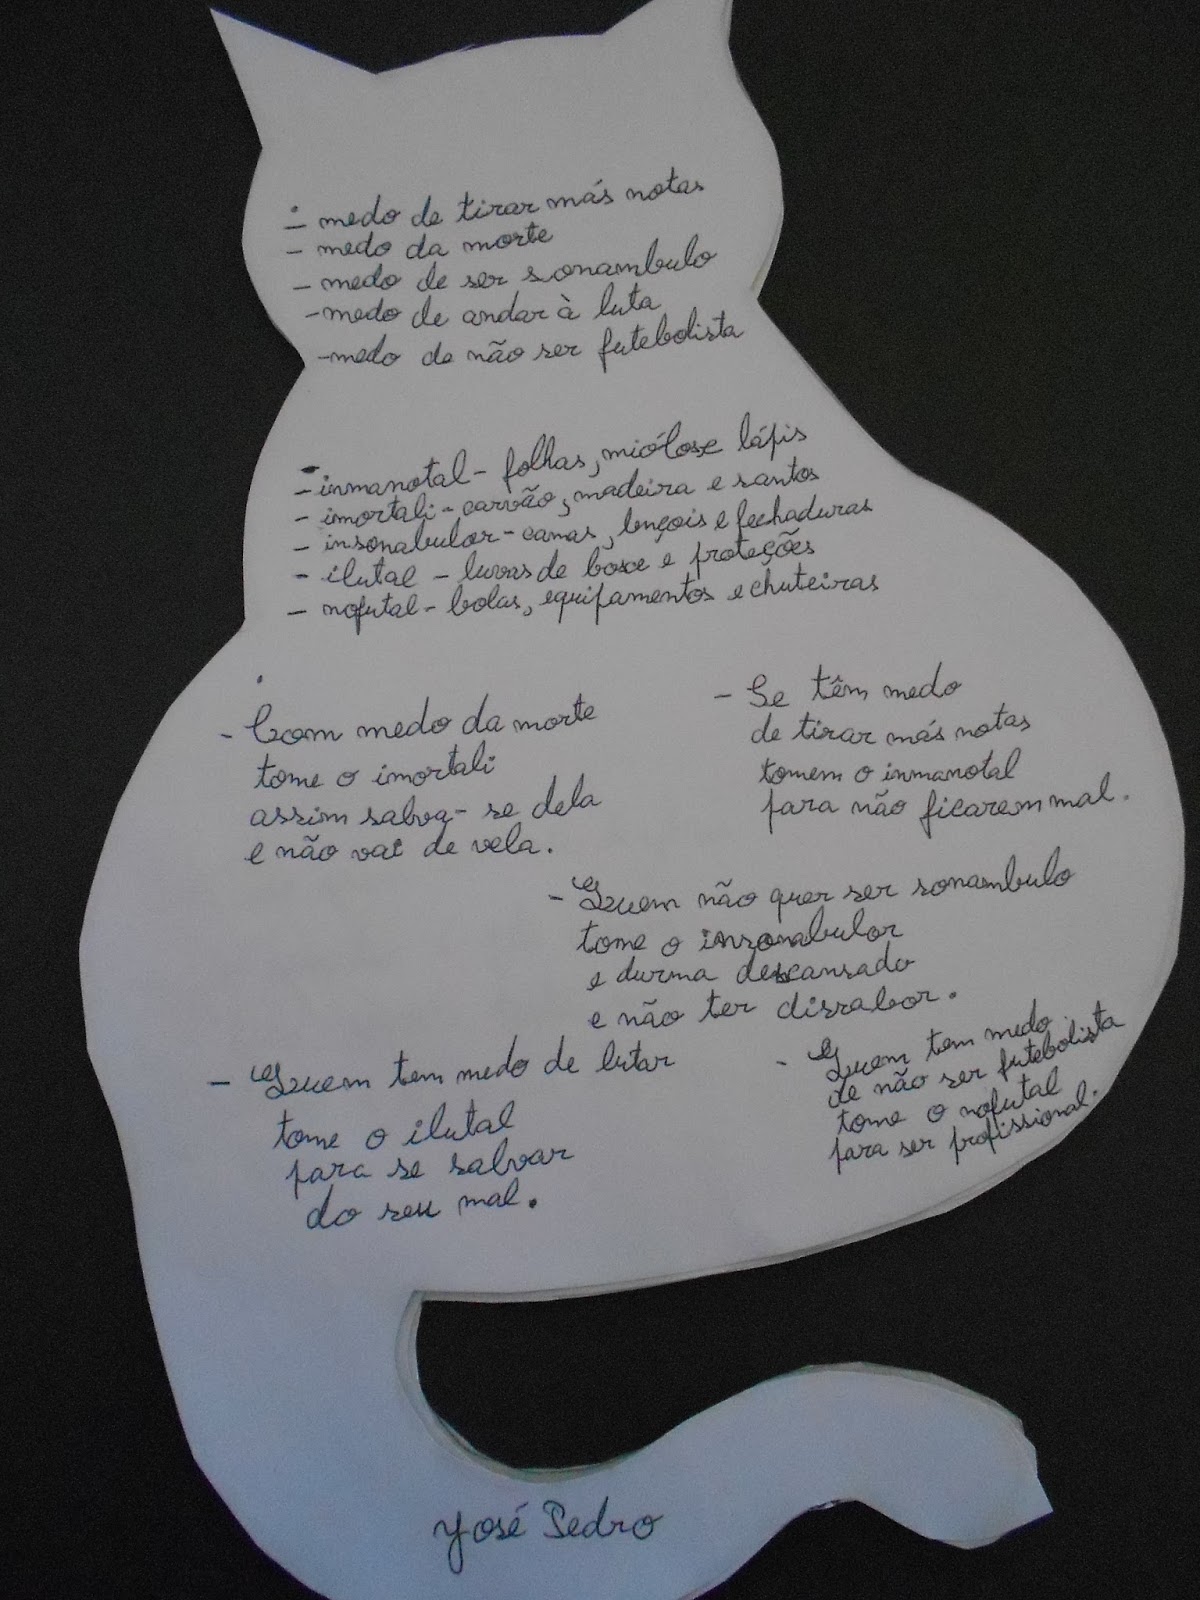 - medo de tirar más notas
- medo da morte
- medo de ser sonambulo
- medo de andar à luta
- medo de não ser futebolista
- inmanotal - folhas, miólos e lápis
- imortali - carvão, madeira e santos
- insonabulor - camas, lençois e fechaduras
- ilutal - luvas de boxe e proteções
- nofutal - bolas, equipamentos e chuteiras
- Com medo da morte
tome o imortali
assim salva-se dela
e não vai de vela.
- Se têm medo
de tirar más notas
tomem o inmanotal
para não ficarem mal.
- Quem não quer ser sonambulo
tome o insonabulor
e durma descansado
e não ter dissabor.
- Quem tem medo de lutar
tome o ilutal
para se salvar
do seu mal.
- Quem tem medo
de não ser futebolista
tome o nofutal
para ser profissional.
José Pedro